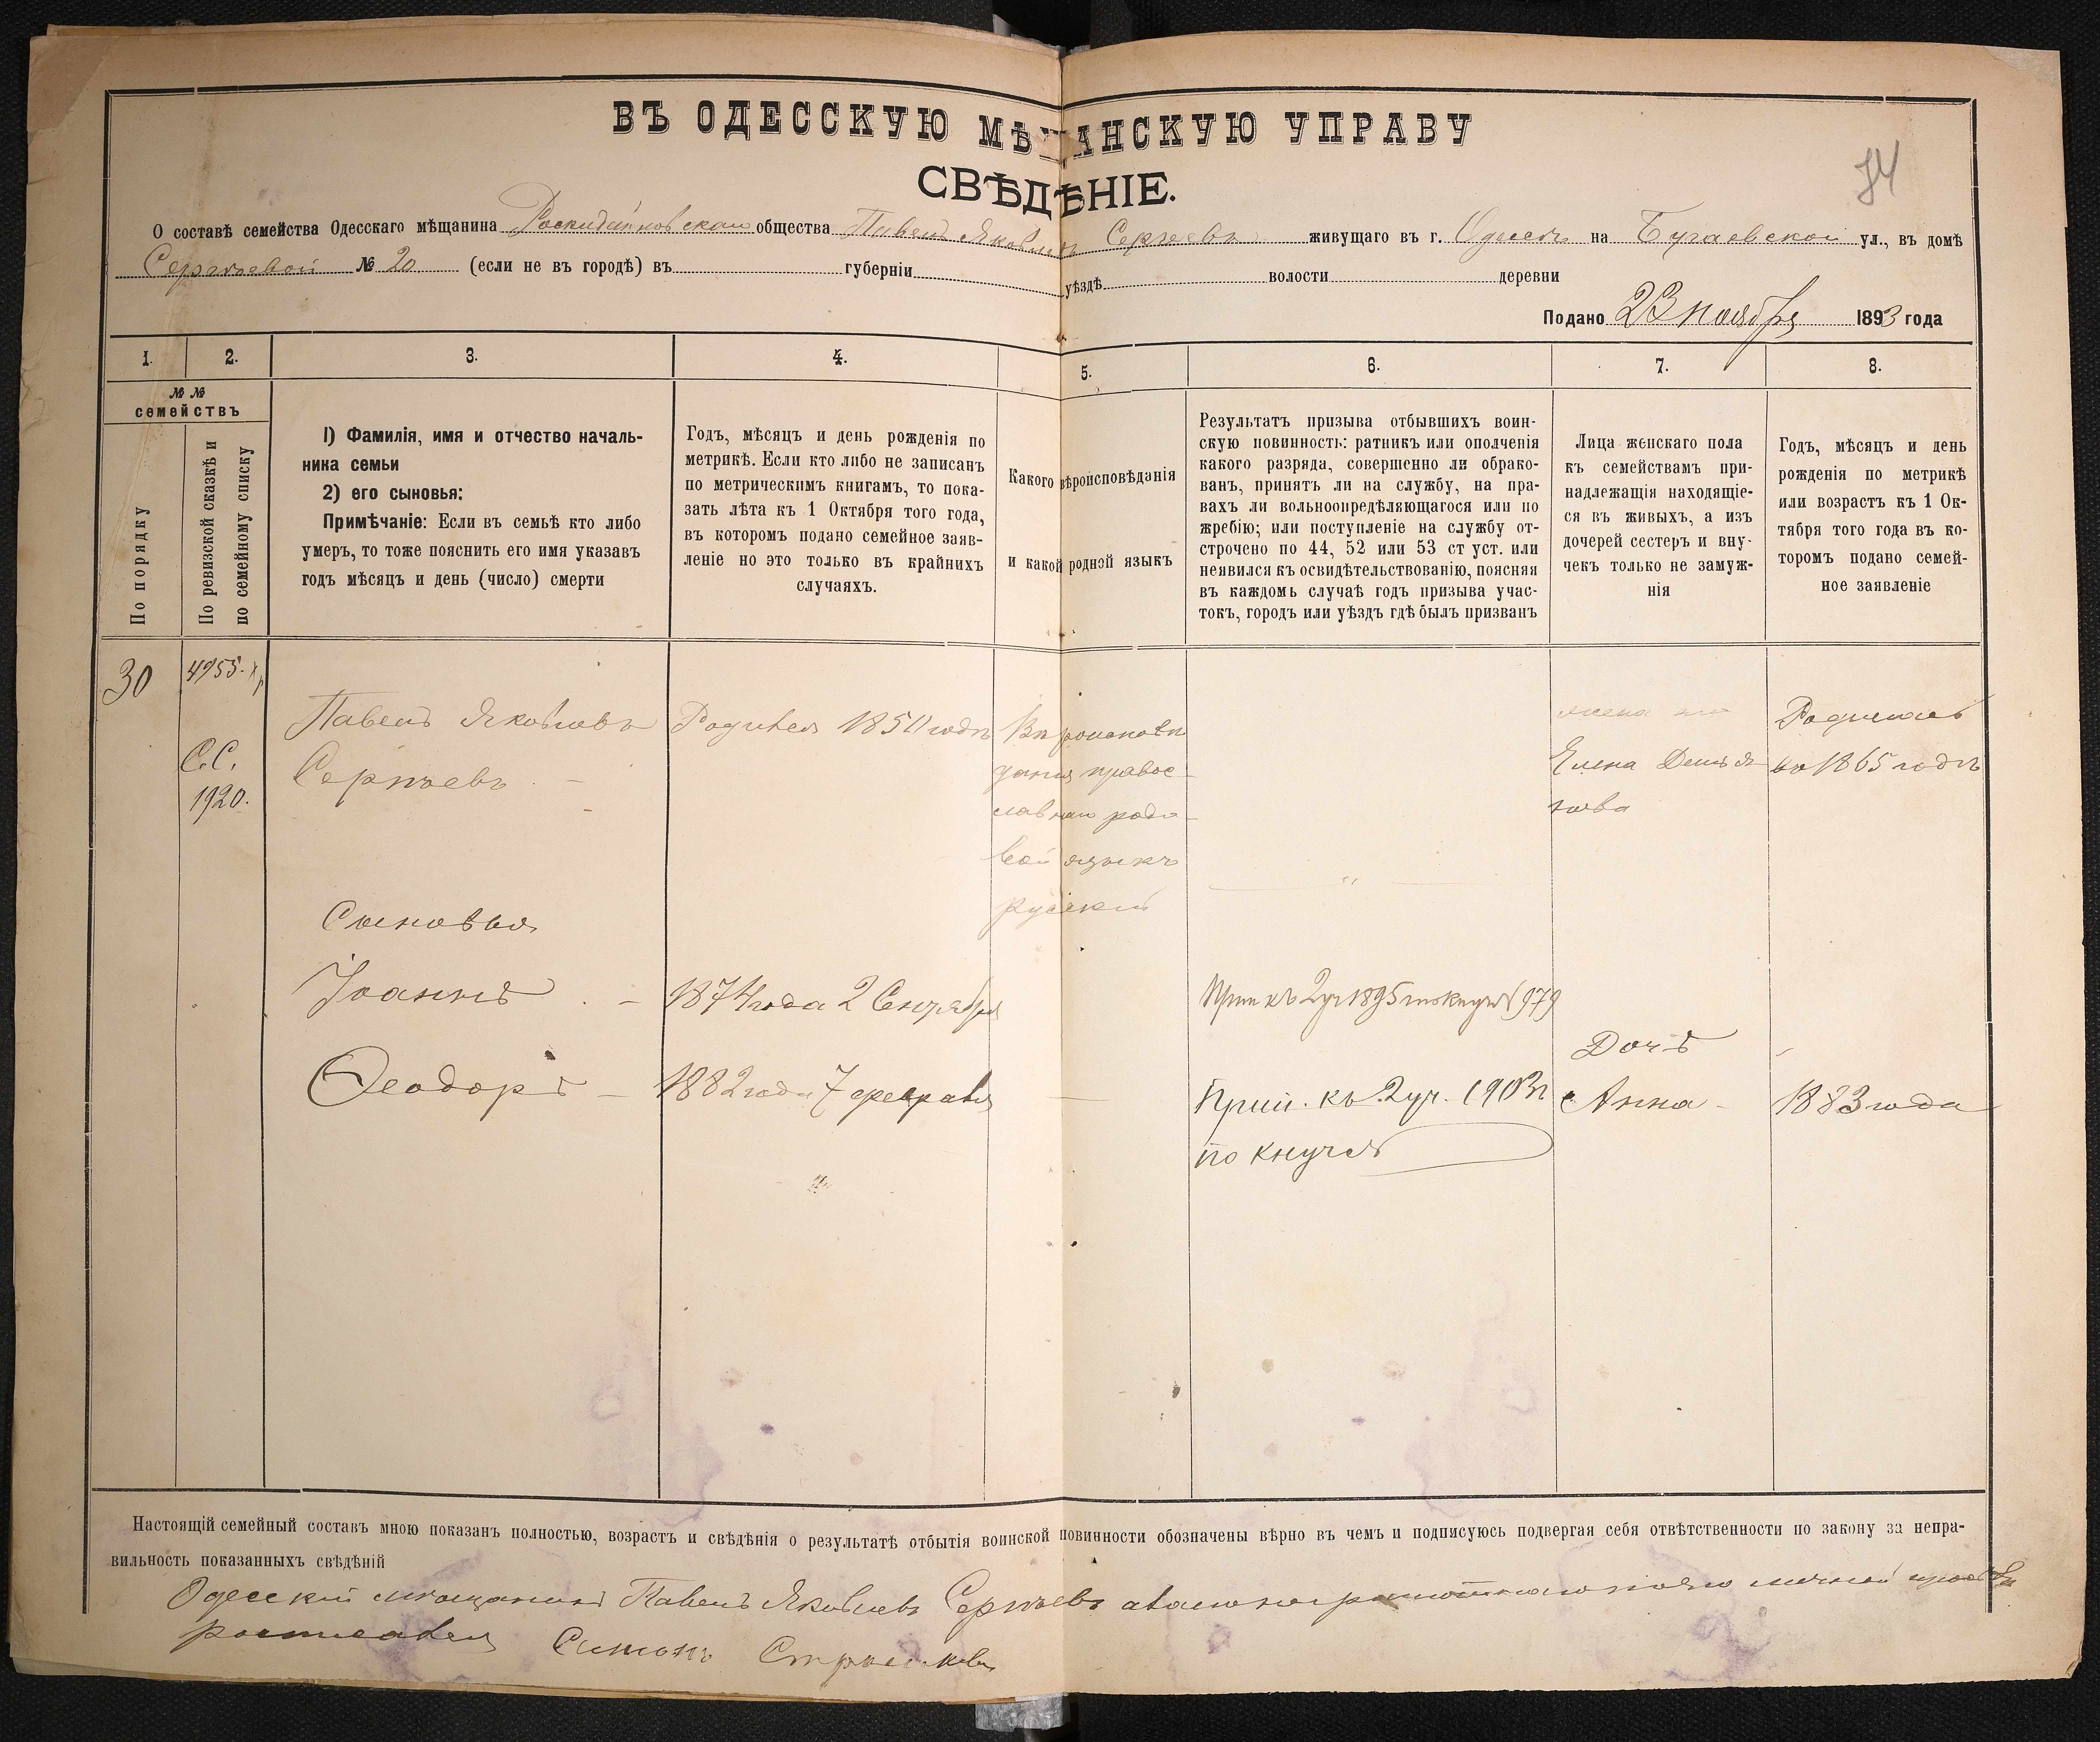 ВЪ ОДЕССКУЮ МѢЩАНСКУЮ УПРАВУ
СВѢДѢНІЕ.
74
О составѣ семейства Одесскаго мѣщанина общества Павелъ Яковлевъ Сергѣевъ живущаго въ г. Одессѣ на Бугаевской ул., въ домѣ
Сергѣевой № 20 (если не въ городѣ) въ губерніи уѣздѣ волости деревни
Подано 23 ноября 1893 года
1. 2. 3. 4. 5. 6. 7. 8.
№ №
семействъ
По порядку
По ревизской сказкѣ и
по семейному списку
1) Фамилія, имя и отчество началь-
ника семьи
2) его сыновья:
Примѣчаніе: Если въ семьѣ кто либо
умеръ, то тоже пояснить его имя указавъ
годъ мѣсяцъ и день (число) смерти
Годъ, мѣсяцъ и день рожденія по
метрикѣ. Если кто либо не записанъ
по метрическимъ книгамъ, то пока-
зать лѣта къ 1 Октября того года,
въ которомъ подано семейное заяв-
леніе но это только въ крайнихъ
случаяхъ.
Какого вѣроисповѣданія
и какой родной языкъ
Результатъ призыва отбывшихъ воин-
скую повинность: ратникъ или ополченія
какого разряда, совершенно ли обрако-
ванъ, принятъ ли на службу, на пра-
вахъ ли вольноопредѣляющагося или по
жребію; или поступленіе на службу от-
строчено по 44, 52 или 53 ст уст. или
неявился къ освидѣтельствованію, поясняя
въ каждомъ случаѣ годъ призыва учас-
токъ, городъ или уѣздъ гдѣ былъ призванъ
Лица женскаго пола
къ семействамъ при-
надлежащія находящіе-
ся въ живыхъ, а изъ
дочерей сестеръ и вну-
чекъ только не замуж-
нія
Годъ, мѣсяцъ и день
рожденія по метрикѣ
или возрастъ къ 1 Ок-
тября того года въ ко-
торомъ подано семей-
ное заявленіе
30 4955.
С.С.
1920.
Павелъ Яковлевъ
Сергѣевъ
Родился
православнаго
языкъ
русскій
жена его
Елена
Родилась
въ 1865 годѣ
Сыновья
Іоаннъ
1874 года 2 Сентября
Ѳеодоръ
1882 года 7 февраля
Прип. къ 2 уч. 1903
по
Дочь
Анна
1883 года
Настоящій семейный составъ мною показанъ полностью, возрастъ и свѣдѣнія о результатѣ отбытія воинской повинности обозначены вѣрно въ чемъ и подписуюсь подвергая себя отвѣтственности по закону за непра-
вильность показанныхъ свѣдѣній
Одесскій мѣщанинъ Павелъ Яковлевъ Сергѣевъ
росписался Симонъ